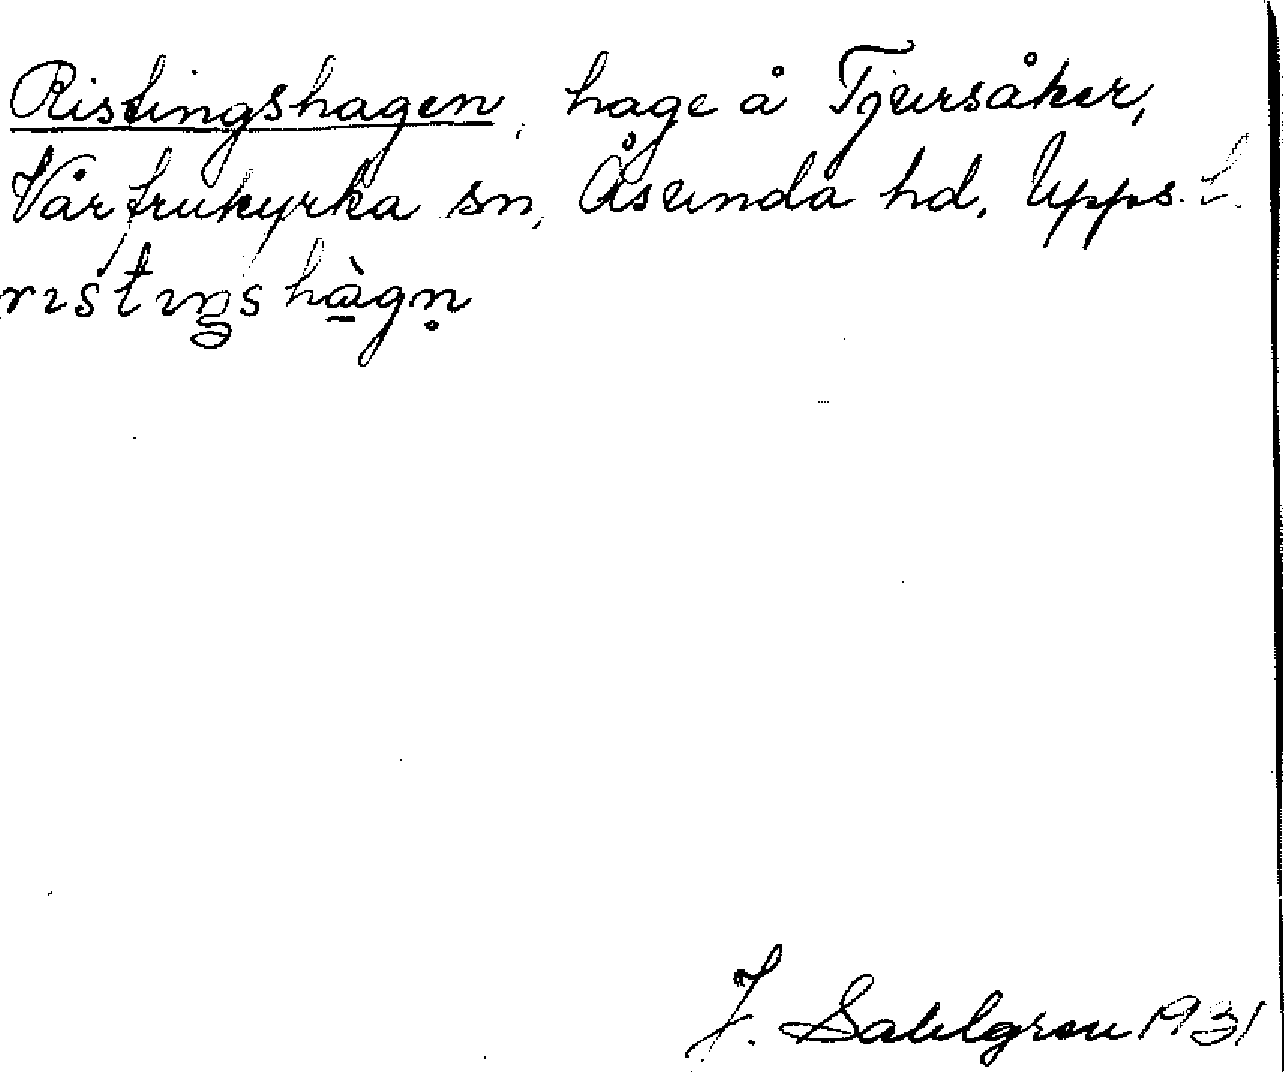 Ristingshagen, hage å Tjursåker,
Vårfrukyrka sn, Åsunda hd. Upps. l.
rıstıŋshàgn̥
J. Sahlgren 1931